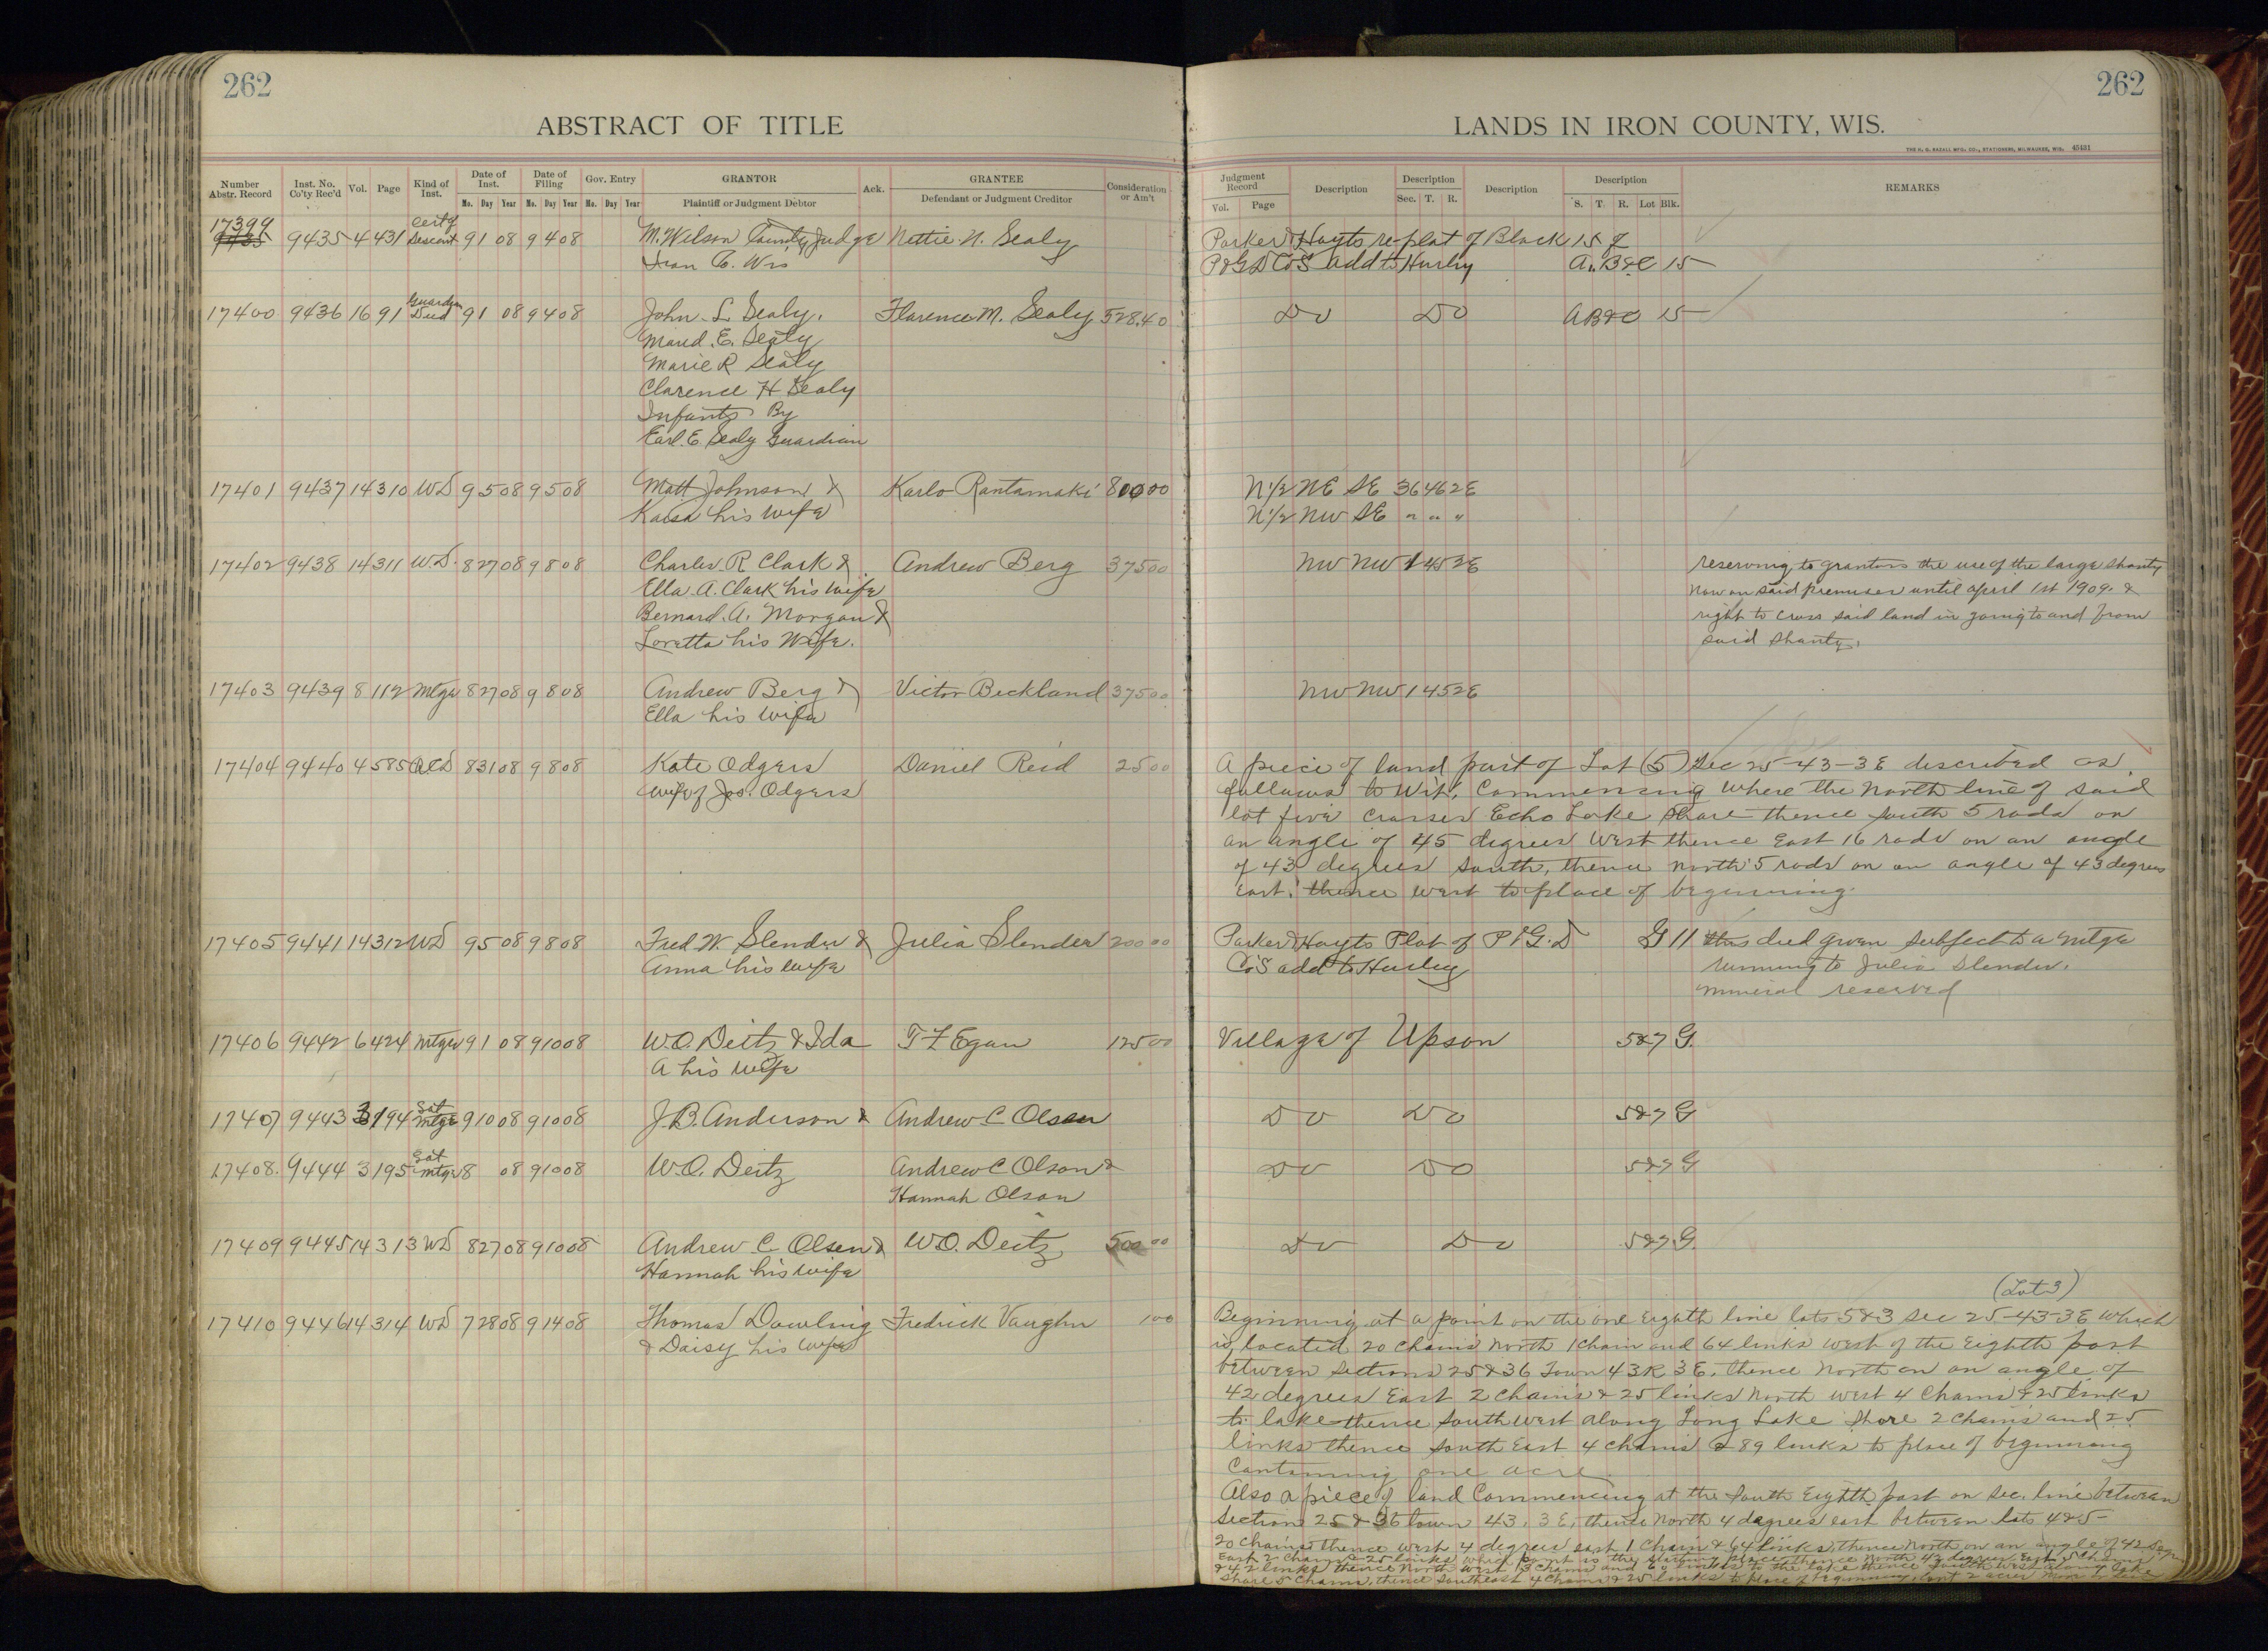 262
ABSTRACT OF TITLE
Number Abstr. Record Inst. No. Co'ty Rec'd Vol. Page Kind of Inst. Date of Inst. Date of Filing Gov. Entry GRANTOR Ack. GRANTEE Consideration or Am't
Mo. Day Year Mo. Day Year Mo. Day Year Plaintiff or Judgment Debtor Defendant or Judgment Creditor
17399 Certf
9435 9435 4 431 Descent 9 1 08 9 4 08 M. Wilson County Judge Nettie N. Sealy
Iron Co. Wis
17400 9436 16 91 Guardian Deed 9 1 08 9 4 08 John L Sealy, Florence M. Sealy 528.40
Maud. E. Sealy
Marie R Sealy
Clarence H Sealy
Infants By
Earl. E. Sealy Guardian
17401 9437 14 310 WD 9 5 08 9 5 08 Matt Johnson & Karlo Rantamaki 800 00
Kaisa his wife
17402 9438 14 311 WD. 8 27 08 9 8 08 Charles R Clark & Andrew Berg 375 00
Ella. A. Clark his wife
Bernard. A. Morgan &
Loretta his Wife.
17403 9439 8 112 Mtge 8 27 08 9 8 08 Andrew Berg & Victor Beckland 375 00
Ella his wife
17404 9440 4 585 QCD 8 31 08 9 8 08 Kate Odgers Daniel Reid 25 00
wife of Jos. Odgers
17405 9441 14 312 WD 9 5 08 9 8 08 Fred W. Slender & Julia Slender 200 00
Anna his wife
17406 9442 6 424 Mtge 9 1 08 9 10 08 W.O. Deitz & Ida T F Egan 125 00
A his wife
17407 9443 3 194 Sat Mtge 9 10 08 9 10 08 J.B. Anderson & Andrew C Olsen
17408. 9444 3 195 Sat Mtge 8 08 9 10 08 W.O. Deitz Andrew C Olson &
Hannah Olson
17409 9445 14 313 WD 8 27 08 9 10 08 Andrew C. Olsen & W.O. Deitz 500 00
Hannah his wife
17410 9446 14 314 WD 7 28 08 9 14 08 Thomas Dowling Fredrick Vaughn 1 00
& Daisy his wife
262
LANDS IN IRON COUNTY, WIS.
THE H. G. RAZALL MFG. CO., STATIONERS, MILWAUKEE, WIS. 45431
Judgment Record Description Description Description Description REMARKS
Vol. Page Sec. T. R. S. T. R. Lot Blk.
Parker & Hoyts replat of Block 15 of
P&GD Co'S add to Hurley A. B & C 15
Do Do A B & C 15
N 1/2 NE SE 36 46 2E
N 1/2 NW SE " " "
NW NW 1 45 2E reserving to grantors the use of the large shanty
now on said premises until april 1st 1909. &
right to cross said land in going to and from
said shanty.
NW NW 1 45 2E
A piece of land part of Lot (5) Sec 25-43-3E described as
follows to wit, Commencing where the North line of said
lot five crosses Echo Lake Shore thence South 5 rods on
an angle of 45 degrees West thence East 16 rods on an angle
of 43 degrees South, thence north 5 rods on an angle of 43 degrees
East. thence west to place of beginning.
Parker & Hoyts Plat of P & G. D G 11 this deed given subject to a mtge
Co'S add to Hurley running to Julia Slender.
mineral reserved
Village of Upson 5&7 G.
Do Do 5&7 G
Do Do 5&7 G
Do Do 5&7 G.
(Lot 3)
Beginning at a point on the one Eighth line lots 5&3 Sec 25-43-3E which
is located 20 chains North 1 chain and 64 links west of the Eighth post
between sections 25 & 36 Town 43 R 3E. thence North on an angle of
42 degrees East 2 chains & 25 links North West 4 Chains & 25 links
to lake thence South west along Long Lake Shore 2 chains and 25
links thence South East 4 chains & 89 links to place of beginning
Containing one acre
Also a piece of land Commencing at the South Eighth post on sec. line between
Section 25 & 36 town 43, 3E, thence North 4 degrees east between lots 4&5-
20 chains thence west 4 degrees east 1 Chain & 64 links thence North on an angle of 42 degrees
East 2 chains 25 links which point is the starting place thence North 42 degrees East 5 Chains
& 42 links thence North West 3 Chains and 64 links to the lake thence South west along lake
Shore 5 Chains, thence Southeast 4 Chains & 25 links to place of beginning, Cont 2 acres more or less